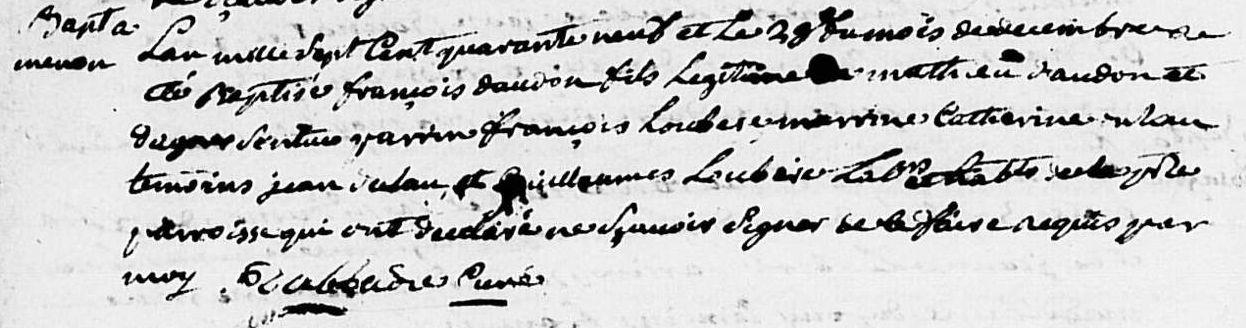 Bapt a
menon
Lan mille Sept Cent quarante neuf et le 29 du mois de decembre a
eté Baptisé françois daudon fils Legitime de mathieu daudon et
parrin françois Loubere marrine Catherine dulau
temoins jean dulau et Guillaumes Loubere Lab.rs et hab.ts de la p.nte
parroisse qui ont declaré ne sçavoir signer de le faire requis par
moy Curé